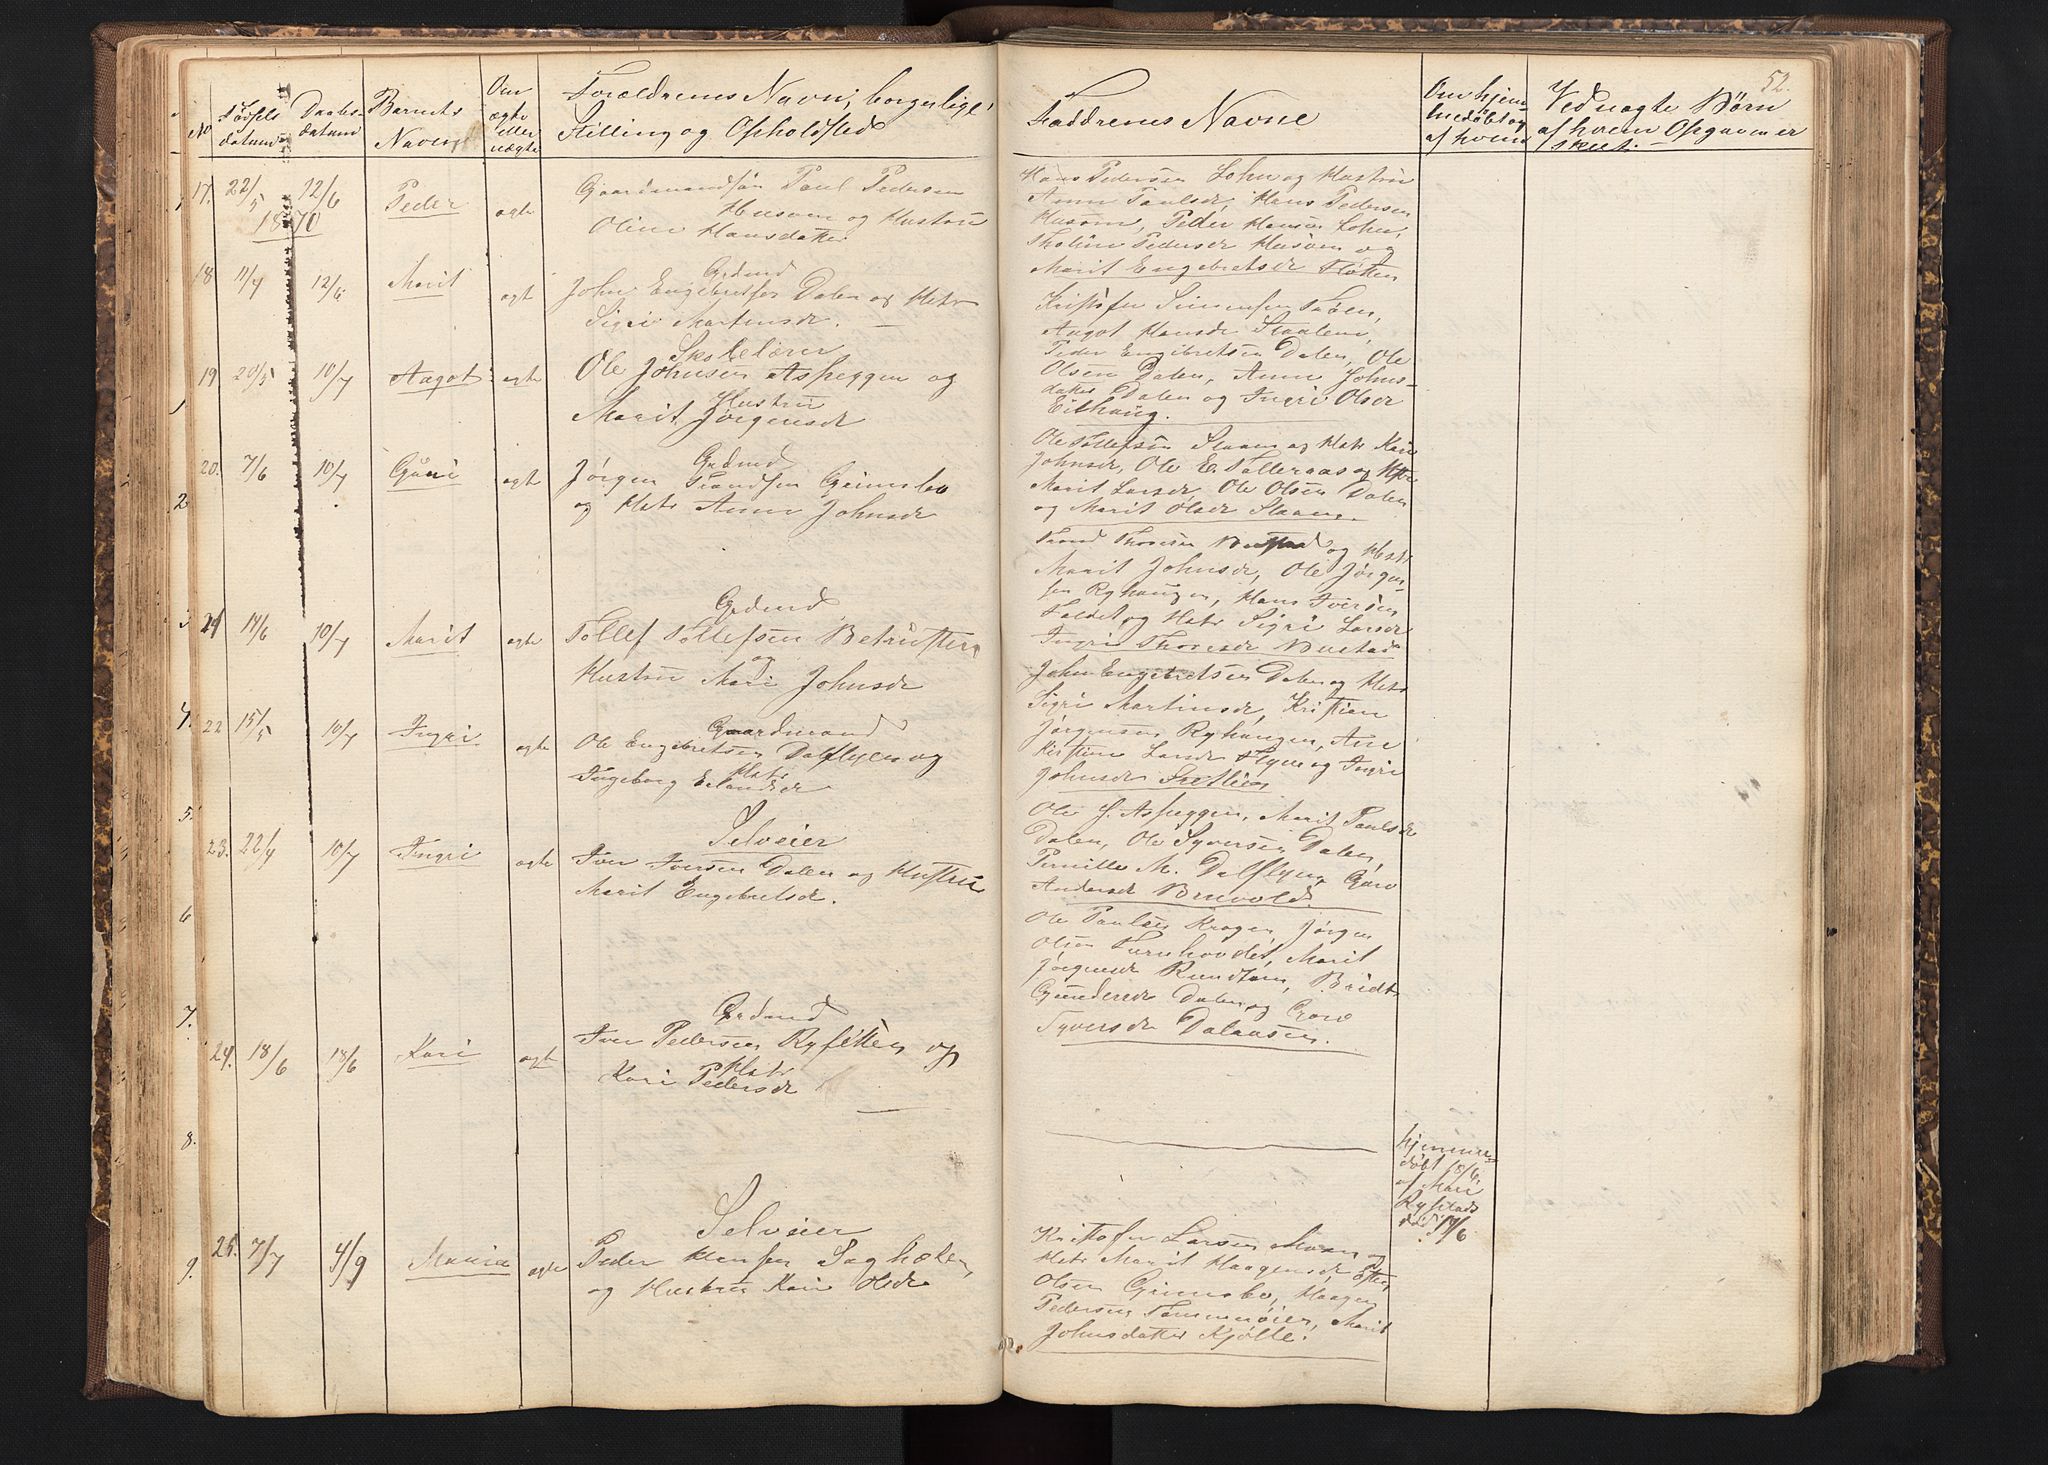 52.
No
Fødsels datum
Daabs datum
Barnets Navn
Om ægte eller uægte
Forældrenes Navn, borgerlige Stilling og Opholdsted
Faddrenes Navne
Om hjemmedøbt og af hvem
Ved uægte Børn af hvem Opgaven er skeet.
17. 22/5 12/6 Peder ægte
1870
Gaardmandsøn Paul Pedersen
Husom og Hustru
Oline Hansdatter
Hans Pedersen Lohn og Hustru
Anne Paulsdr, Hans Pedersen
Husom, Peder Hansen Lohn,
Pedersdr Husom og
Marit Engebretsdr Fløtten
18 11/4 12/6 Marit ægt
Grdmd
John Engebretsen Dalen og Hstr
Sigri Martinsdr.
Kristofer Simensen
Aagot Hansdr
Peder Engebretsen Dalen, Ole
Olsen Dalen, Anne Johns-
datter Dalen og Ingri Olsdr
19 20/5 10/7 Aagot ægte
Skolelærer
Ole Johnsen Aspeggen og
Hustru
Marit Jørgensdr
Ole Tollefsen og Hstr Kari
Johnsdr, Ole E. Tolleraas og Hstr
Marit Larsdr, Ole Olsen Dalen
og Marit Olsdr
20. 7/6 10/7 Guri ægte
Grdmd
Jørgen Trondsen Grimsbo
og Hstr Anne Johnsdr
Trond Thoresen og Hstr
Marit Johnsdr, Ole Jørgen-
sen Ryhaugen, Hans Iversen
og Hstr Sigri Larsdr
Ingri Thoresdr
21 14/6 10/7 Marit ægte
Grdmd
Tollef Tollefsen
og
Hustru Mari Johnsdr
John Engebretsen Dalen og Hstr
Sigri Martinsdr, Kristian
Jørgensen Ryhaugen, Ane
Kirstine og Ingri
Johnsdr
22 15/5 10/7 Ingri ægte
Gaardmand
Ole Engebretsen Dalflyen og
Hstr
Ingeborg Erlandsdr
Ole J. Aspeggen, Marit Paulsdr
Dalen, Ole Syversen Dalen,
Pernille M. Dalflyen, Goro
Andersdr Bruvold.
23. 22/4 10/7 Ingri ægte
Selveier
Iver Iversen Dalen og Hustru
Marit Engebretsdr.
Ole Paulsen Krogen, Jørgen
Olsen Furuhovdet, Marit
Jørgensdr, Bridt
Gundersdr Dalen og Goro
Syversdr
24. 18/6 18/6 Kari ægte
Grdmd
Iver Pedersen Rysletten og
Hstr
Kari Pedersdr
hjemme-
døbt 18/6
af Mari
død 19/6
25. 7/7 4/9 Maria ægte
Selveier
Peder Hansen
og Hustru Kari Olsdr
Kristofer Larsen Moen og
Hstr Marit Haagensdr,
Olsen Grimsbo, Haagen
Pedersen, Marit
Johnsdatter Kjølle.
1.
2
3
4.
5.
6
7.
8.
9.